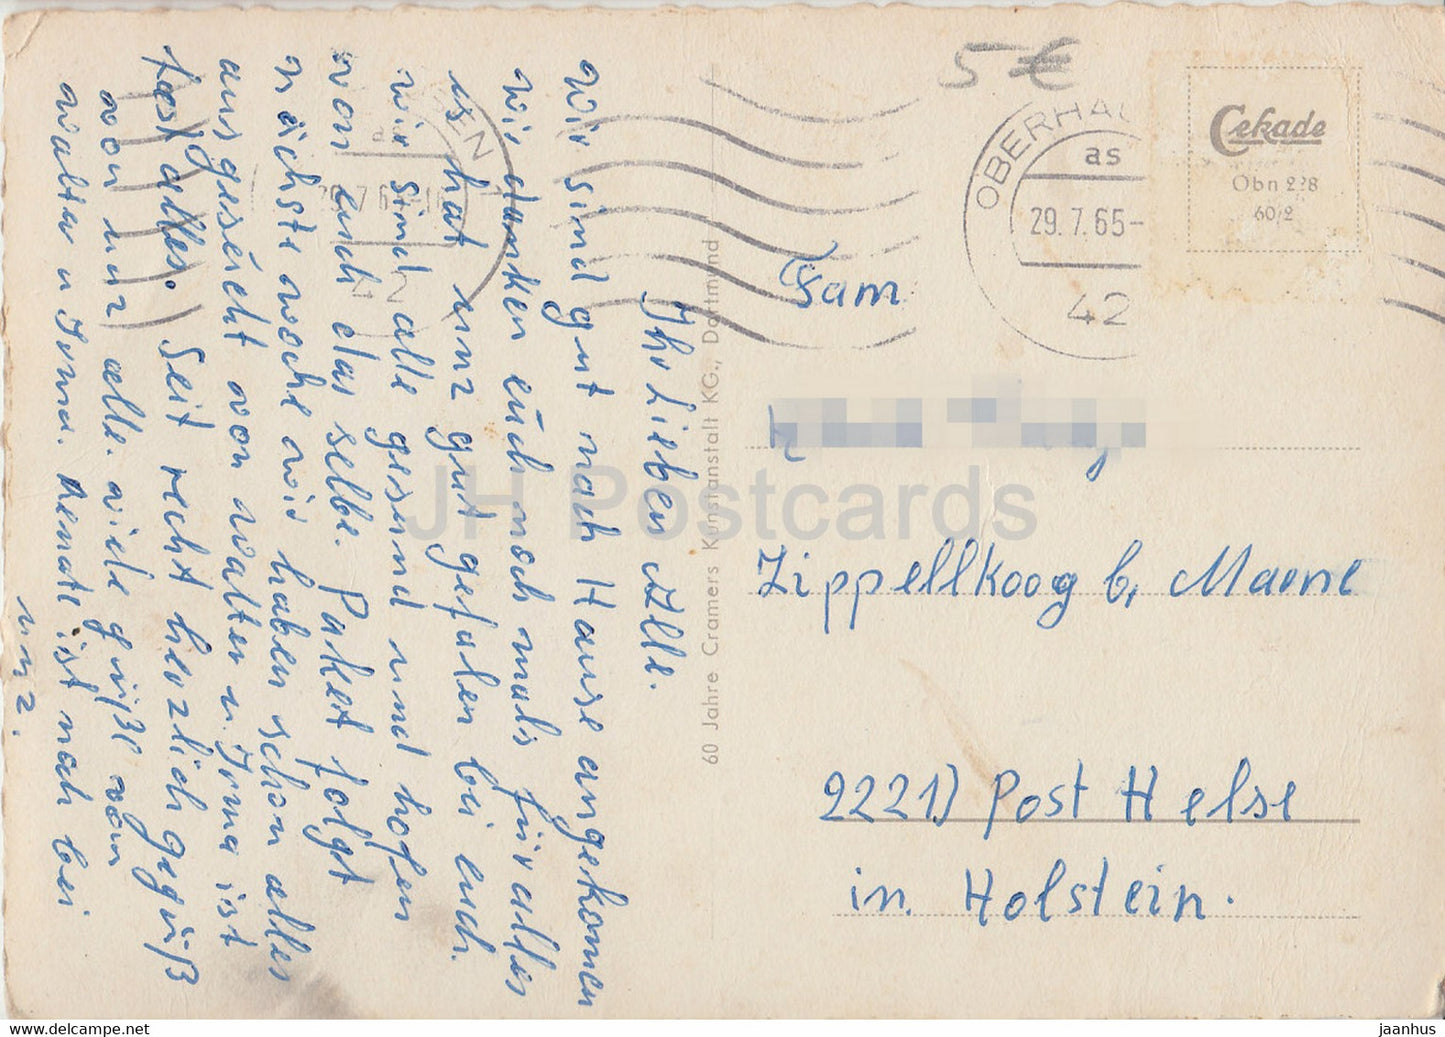 Ihr Lieben Alle.
wir sind gut nach Hause angekomen
wir danken euch noch mals für alles
es hat unz gut gefalen bei euch.
wir sind alle gesund und hofen
von euch das selbe. Paket folgt
nächste woche wir haben schon alles
ausgesucht von walter u. Irma ist
fast alles. Seit recht herzlich gegrüß
von unz alle. viele grüße von
walter u Irma. Renate ist noch bei
unz.
60 Jahre Cramers Kunstanstalt KG., Dortmund
5 €
OBERHAUSEN
as
29.7.65-
42
Cekade
Obn 228
60/2
Fam
Zippellkoog b, Marne
2221) Post Helse
in Holstein.
JH Postcards
www.delcampe.net
jaanhus